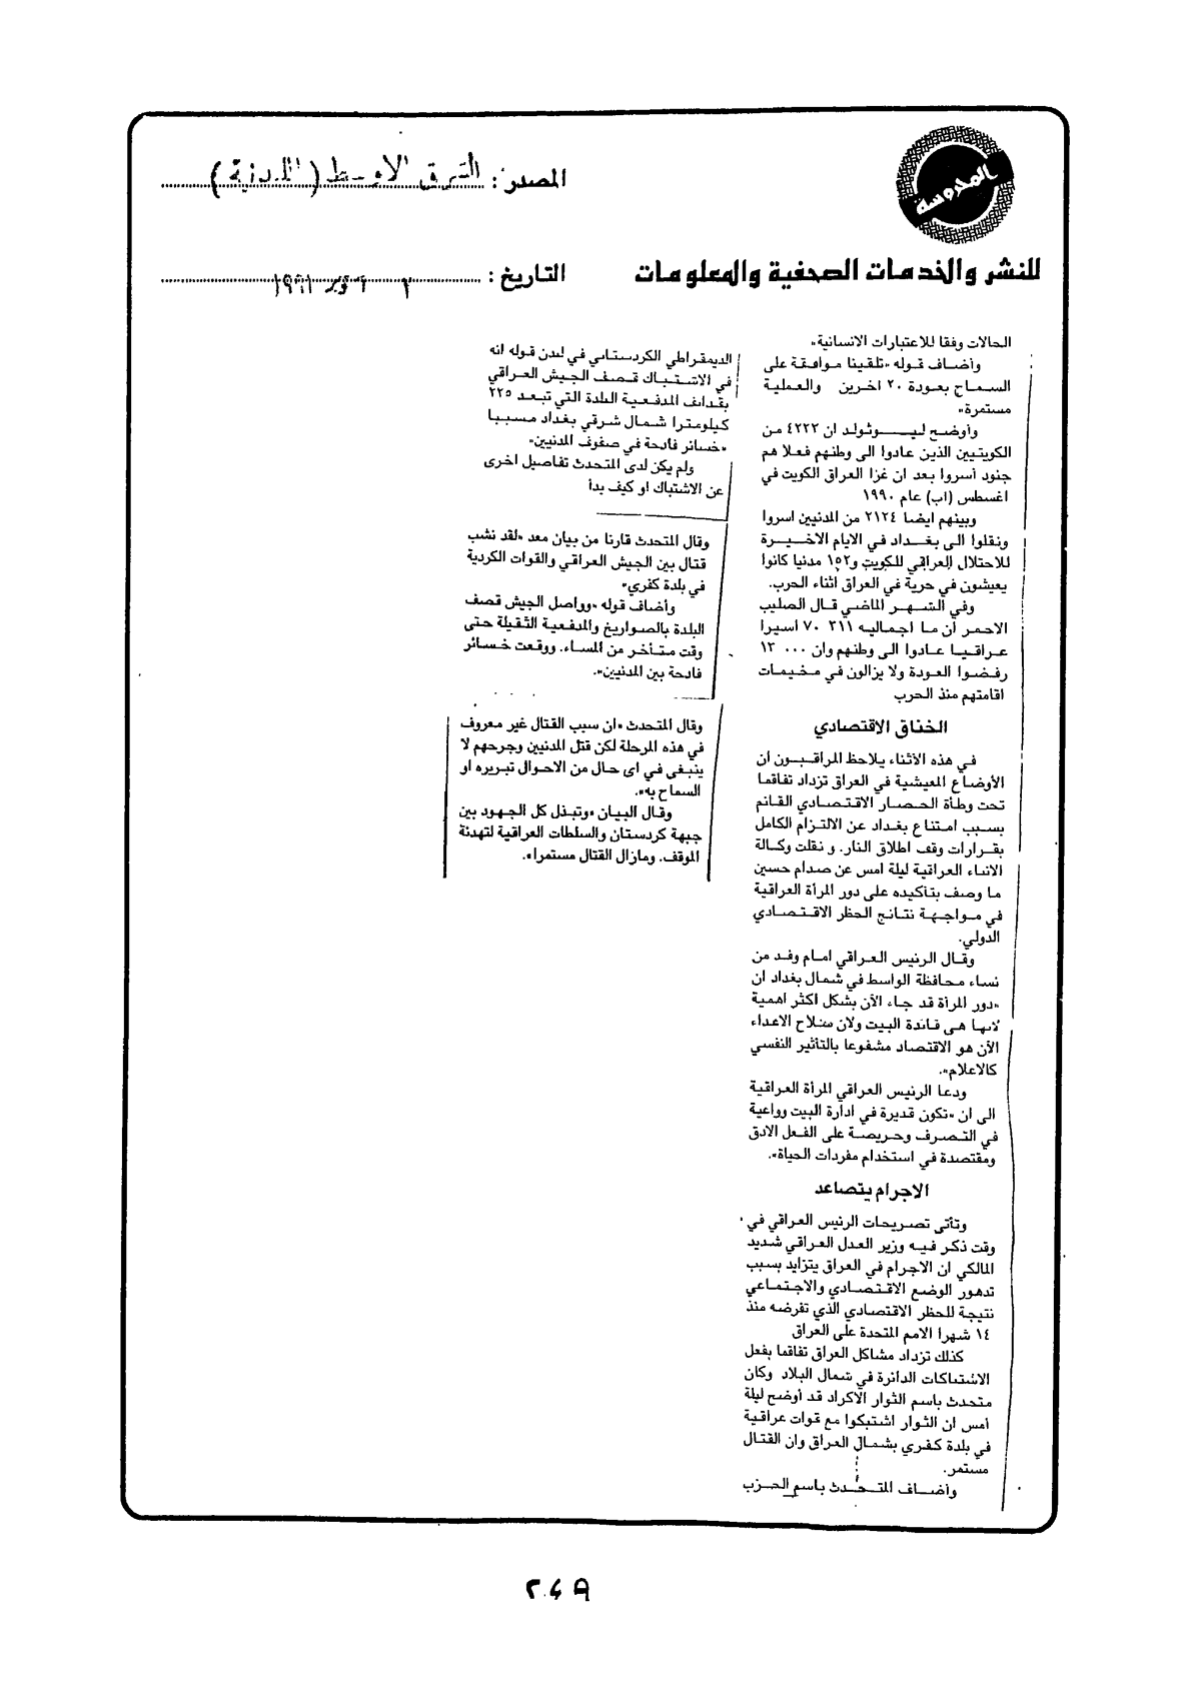 المدروسة
للنشر والخدمات الصحفية والمعلومات
المصدر: الشرق الأوسط (اللندنية)
التاريخ: ٢ أكتوبر ١٩٩١
الحالات وفقا للاعتبارات الانسانية»
وأضاف قوله «تلقينا موافقة على
السماح بعودة ٢٠ اخرين والعملية
مستمرة»
وأوضح ليوثولد ان ٤٢٢٢ من
الكويتيين الذين عادوا الى وطنهم فعلا هم
جنود أسروا بعد ان غزا العراق الكويت في
اغسطس (اب) عام ١٩٩٠
وبينهم ايضا ٢١٢٤ من المدنيين اسروا
ونقلوا الى بغداد في الايام الاخيرة
للاحتلال العراقي للكويت و١٥٢ مدنيا كانوا
يعيشون في حرية في العراق اثناء الحرب.
وفي الشهر الماضي قال الصليب
الاحمر ان ما اجماليه ٢١١ ٧٠ اسيرا
عراقيا عادوا الى وطنهم وان ٠٠٠ ١٣
رفضوا العودة ولا يزالون في مخيمات
اقامتهم منذ الحرب
الخناق الاقتصادي
في هذه الأثناء يلاحظ المراقبون ان
الأوضاع المعيشية في العراق تزداد تفاقما
تحت وطأة الحصار الاقتصادي القائم
بسبب امتناع بغداد عن الالتزام الكامل
بقرارات وقف اطلاق النار. و نقلت وكالة
الانباء العراقية ليلة امس عن صدام حسين
ما وصف بتأكيده على دور المرأة العراقية
في مواجهة نتائج الحظر الاقتصادي
الدولي.
وقال الرئيس العراقي امام وفد من
نساء محافظة الواسط في شمال بغداد ان
«دور المرأة قد جاء الأن بشكل اكثر اهمية
لانها هي قائدة البيت ولان سلاح الاعداء
الأن هو الاقتصاد مشفوعا بالتأثير النفسي
كالاعلام».
ودعا الرئيس العراقي المرأة العراقية
الى ان «تكون قديرة في ادارة البيت وواعية
في التصرف وحريصة على الفعل الادق
ومقتصدة في استخدام مفردات الحياة».
الاجرام يتصاعد
وتأتي تصريحات الرئيس العراقي في
وقت ذكر فيه وزير العدل العراقي شديد
المالكي ان الاجرام في العراق يتزايد بسبب
تدهور الوضع الاقتصادي والاجتماعي
نتيجة للحظر الاقتصادي الذي تفرضه منذ
١٤ شهرا الامم المتحدة على العراق
كذلك تزداد مشاكل العراق تفاقما بفعل
الاشتباكات الدائرة في شمال البلاد وكان
متحدث باسم الثوار الاكراد قد أوضح ليلة
أمس ان الثوار اشتبكوا مع قوات عراقية
في بلدة كفري بشمال العراق وان القتال
مستمر.
وأضاف المتحدث باسم الحزب
الديمقراطي الكردستاني في لندن قوله انه
في الاشتباك قصف الجيش العراقي
بقذائف المدفعية البلدة التي تبعد ٢٢٥
كيلومترا شمال شرقي بغداد مسببا
«خسائر فادحة في صفوف المدنيين»
ولم يكن لدى المتحدث تفاصيل اخرى
عن الاشتباك او كيف بدأ
وقال المتحدث قارئا من بيان معد «لقد نشب
قتال بين الجيش العراقي والقوات الكردية
في بلدة كفري»
وأضاف قوله «وواصل الجيش قصف
البلدة بالصواريخ والمدفعية الثقيلة حتى
وقت متأخر من المساء. ووقعت خسائر
فادحة بين المدنيين».
وقال المتحدث «ان سبب القتال غير معروف
في هذه المرحلة لكن قتل المدنيين وجرحهم لا
ينبغي في اى حال من الاحوال تبريره او
السماح به».
وقال البيان «وتبذل كل الجهود بين
جبهة كردستان والسلطات العراقية لتهدئة
الموقف. ومازال القتال مستمرا».
٢٤٨